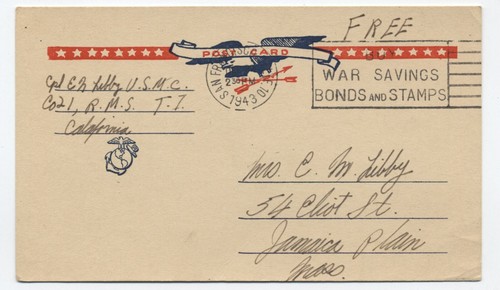 FREE
POST CARD
SAN FRANCISCO
230 PM
1943
WAR SAVINGS
BONDS AND STAMPS
Cpl E M Libby U.S.M.C.
Co 21, R.M.S. T.I.
California
Mrs. C. M. Libby
54 Eliot St.
Jamaica Plain
Mass.